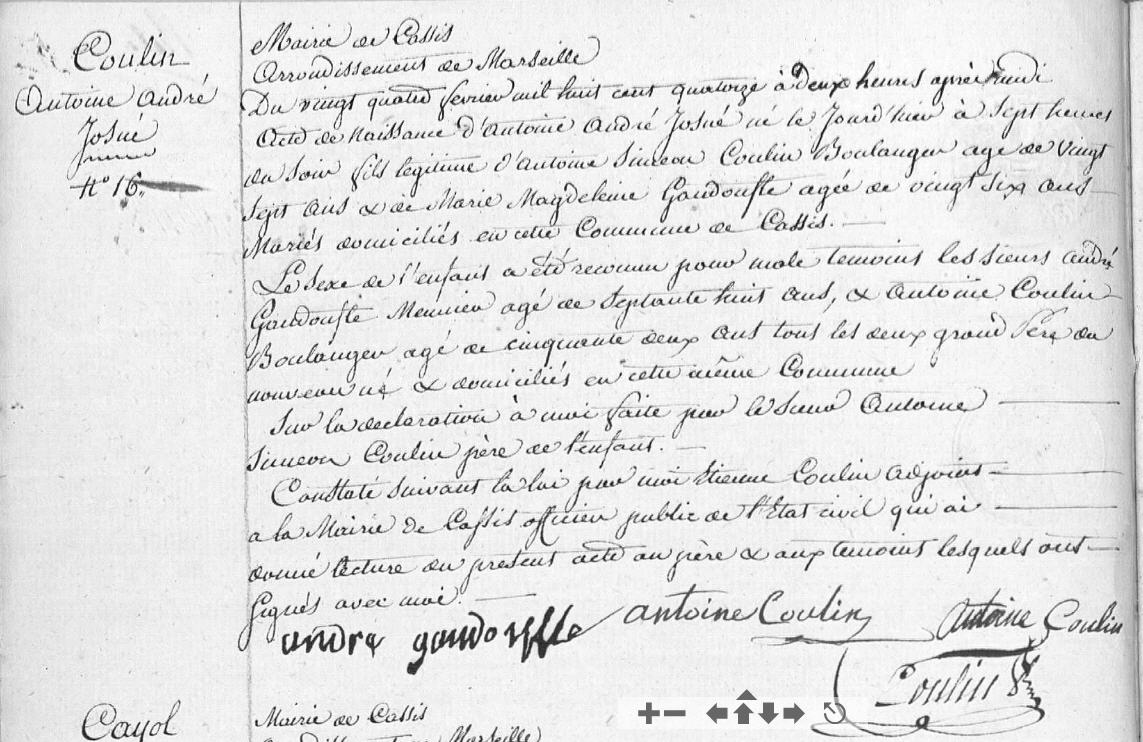 Coulin
Antoine André
Josué
N° 16.
Mairie de Cassis
Arrondissement de Marseille
Du vingt quatre fevrier mil huit cent quatorze à deux heures après midi
Acte de Naissance d'Antoine André Josué né le Jourd'hier à Sept heures
du Soir fils legitime d'Antoine Simeon Coulin Boulanger agé de vingt
Sept ans & de Marie Magdeleine Gandouffle agée de vingt six ans
Mariés domiciliés en cette Commune de Cassis.
Le Sexe de l'enfant a été reconnu pour male temoins les sieurs andré
Gandouffle Meunier agé de Septante huit ans, & Antoine Coulin
Boulanger agé de cinquante deux ans tous les deux grand Père du
nouveau né & domiciliés en cette même Commune
Sur la declaration à moi faite par le Sieur Antoine
Simeon Coulin père de l'enfant.
Constaté suivant la loi par moi Etienne Coulin adjoint
a la Mairie de Cassis officier public de l'Etat civil qui ai
donné lecture du present acte au père & aux temoins lesquels ont
Signés avec moi.
andre gandouffle antoine Coulin Antoine Coulin
Coulin
Cayol
Mairie de Cassis